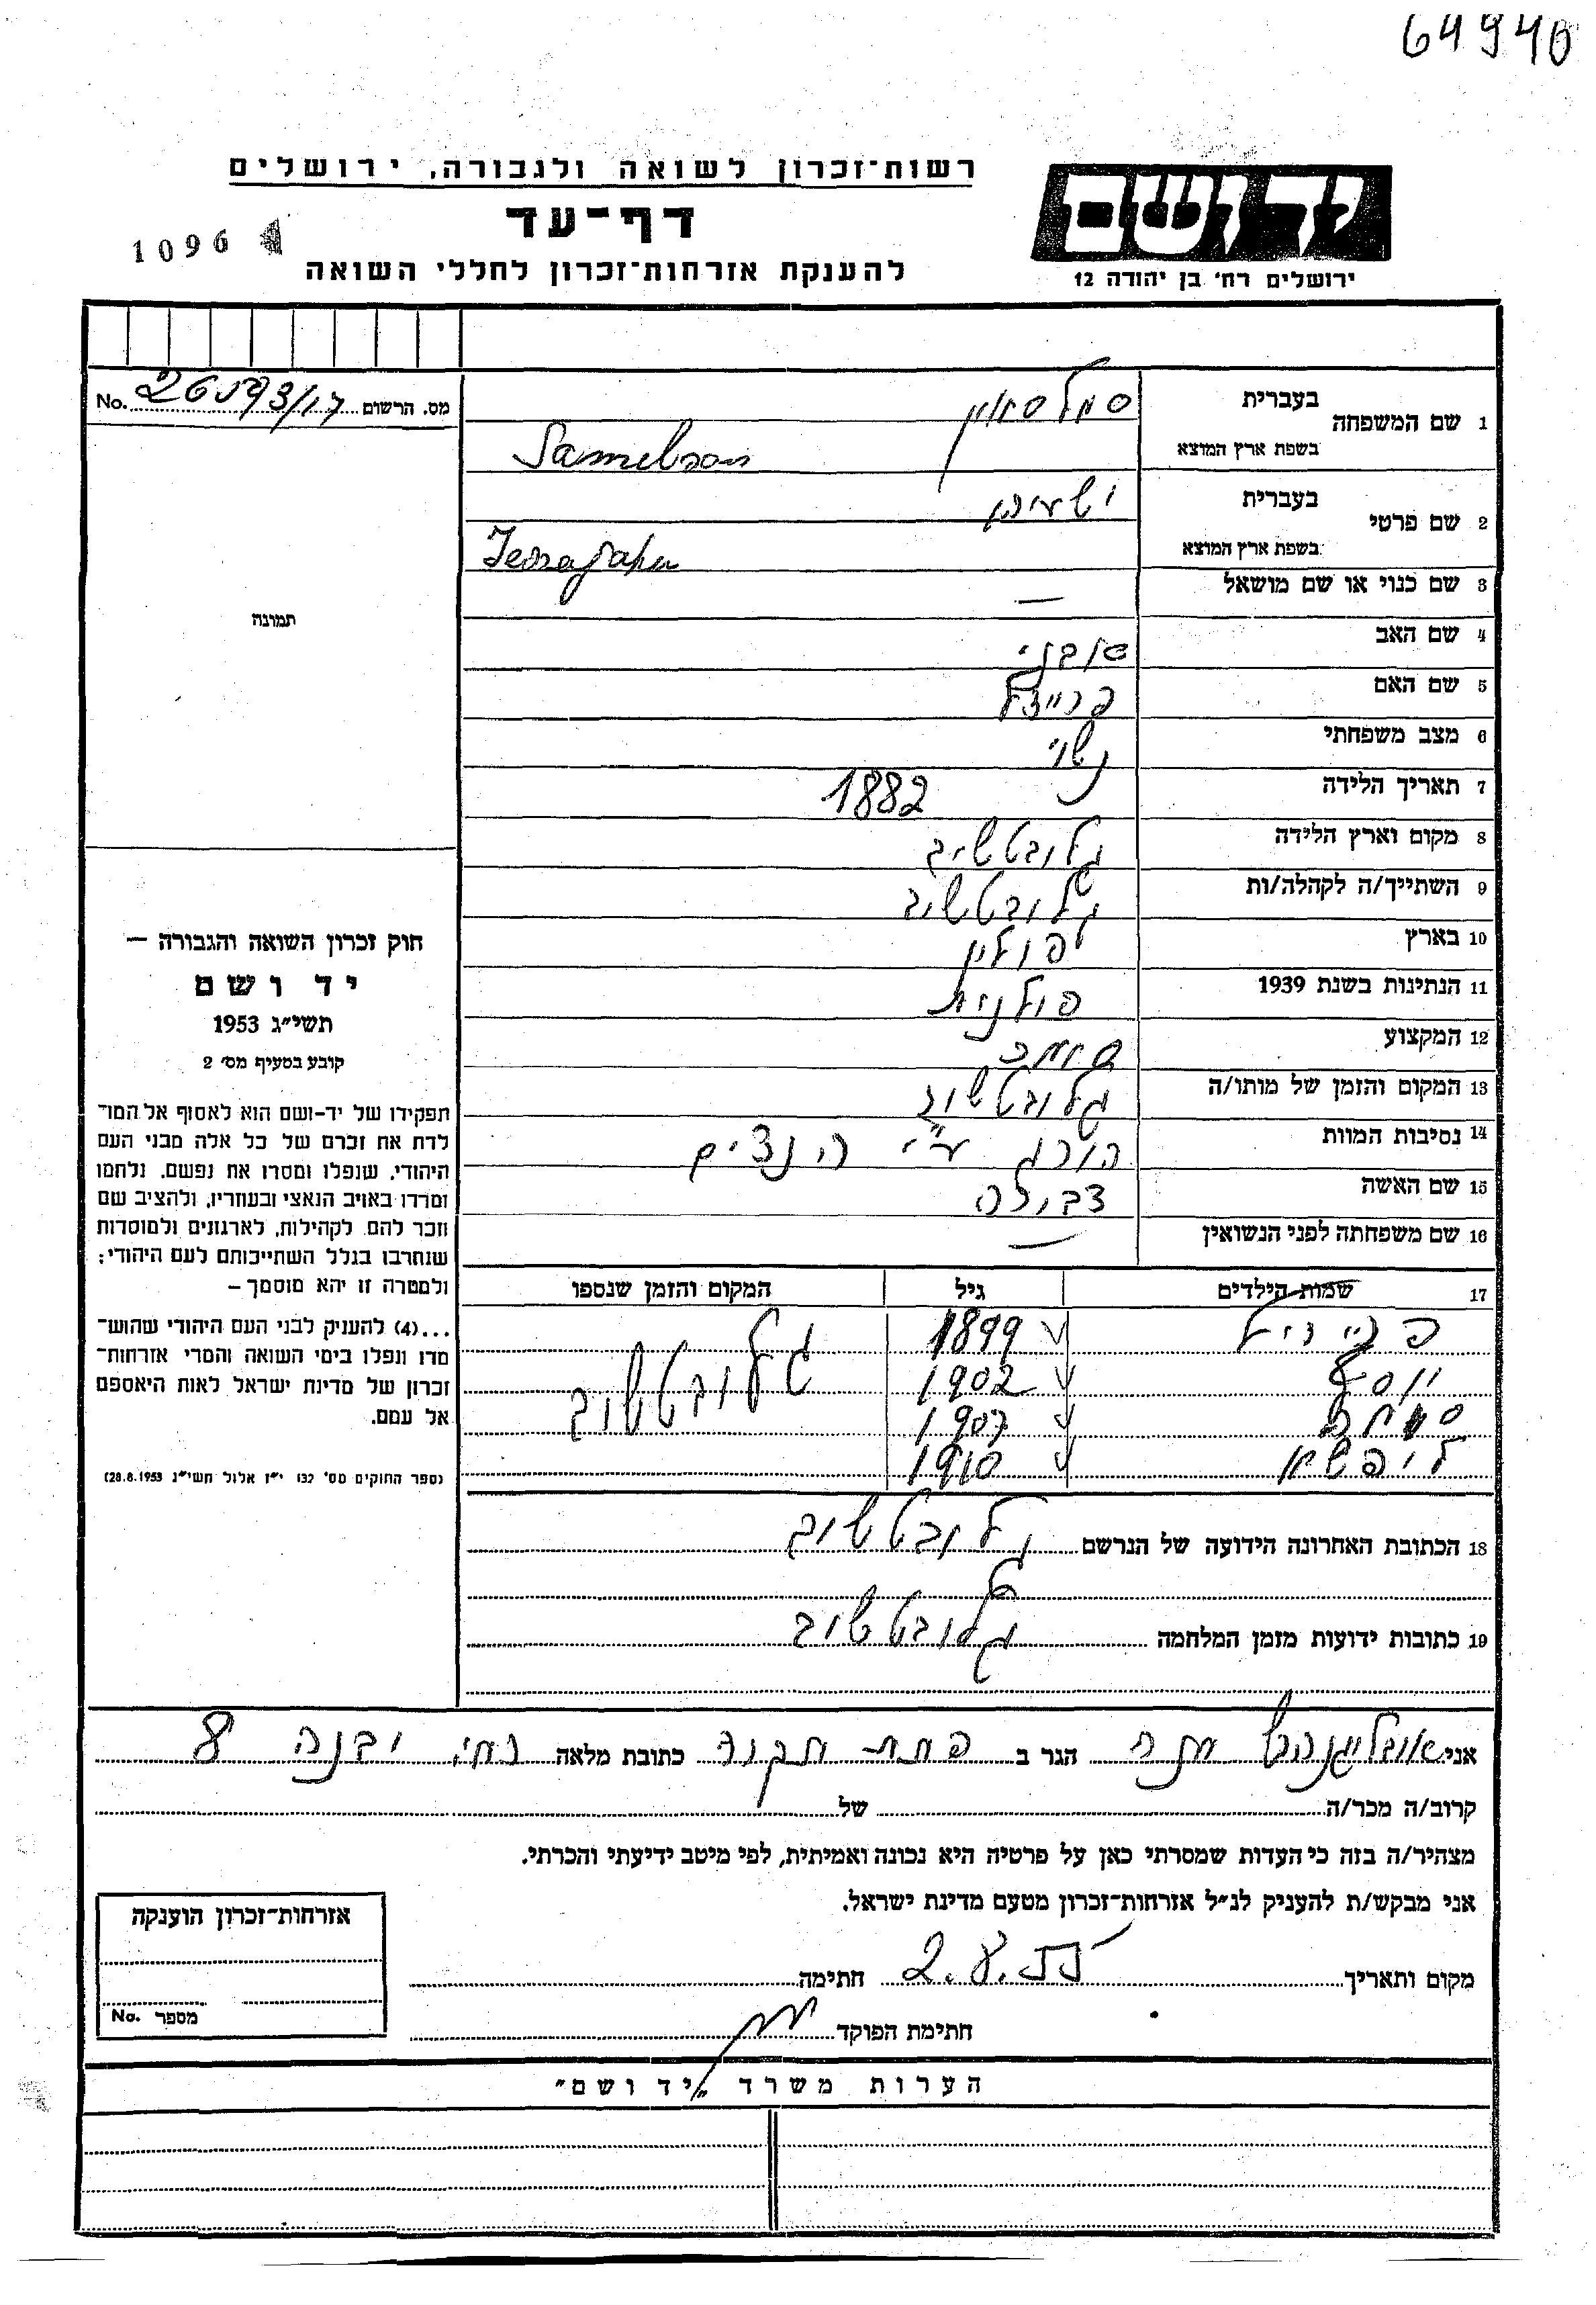 64940
רשות־זכרון לשואה ולגבורה, ירושלים
דף־עד
1096
להענקת אזרחות־זכרון לחללי השואה
יד ושם
ירושלים רח' בן יהודה 12
מס. הרשום No.
1 שם המשפחה בעברית סמלסון
בשפת ארץ המוצא Samelson
2 שם פרטי בעברית ישעיהו
בשפת ארץ המוצא
3 שם כנוי או שם מושאל —
4 שם האב
5 שם האם פריידל
6 מצב משפחתי נשוי
7 תאריך הלידה 1882
8 מקום וארץ הלידה גלובטשוב
9 השתייך/ה לקהלה/ות גלובטשוב
10 בארץ פולין
11 הנתינות בשנת 1939 פולנית
12 המקצוע סוחר
13 המקום והזמן של מותו/ה גלובטשוב
14 נסיבות המוות הורג ע"י הנצים
15 שם האשה דבורה
16 שם משפחתה לפני הנשואין —
17 שמות הילדים גיל המקום והזמן שנספו
1899 גלובטשוב
יוסף 1902
שמחה 1907
ליפשא 1910
18 הכתובת האחרונה הידועה של הנרשם גלובטשוב
19 כתובות ידועות מזמן המלחמה גלובטשוב
תמונה
חוק זכרון השואה והגבורה —
יד ושם
תשי"ג 1953
קובע בסעיף מס' 2
תפקידו של יד-ושם הוא לאסוף אל המו־
לדת את זכרם של כל אלה מבני העם
היהודי, שנפלו ומסרו את נפשם, נלחמו
ומרדו באויב הנאצי ובעוזריו, ולהציב שם
וזכר להם, לקהילות, לארגונים ולמוסדות
שנחרבו בגלל השתייכותם לעם היהודי;
ולמטרה זו יהא מוסמך —
...(4) להעניק לבני העם היהודי שהוש־
מדו ונפלו בימי השואה והמרי אזרחות־
זכרון של מדינת ישראל לאות היאספם
אל עמם.
(ספר החוקים מס' 132 י"ז אלול תשי"ג 28.8.1953)
אני הגר ב פתח תקוה כתובת מלאה רח' יבנה 8
קרוב/ה מכר/ה של
מצהיר/ה בזה כי העדות שמסרתי כאן על פרטיה היא נכונה ואמיתית, לפי מיטב ידיעתי והכרתי.
אני מבקש/ת להעניק לנ"ל אזרחות־זכרון מטעם מדינת ישראל.
מקום ותאריך 2.8.55 חתימה
חתימת הפוקד
אזרחות־זכרון הוענקה
מספר No.
הערות משרד "יד ושם"